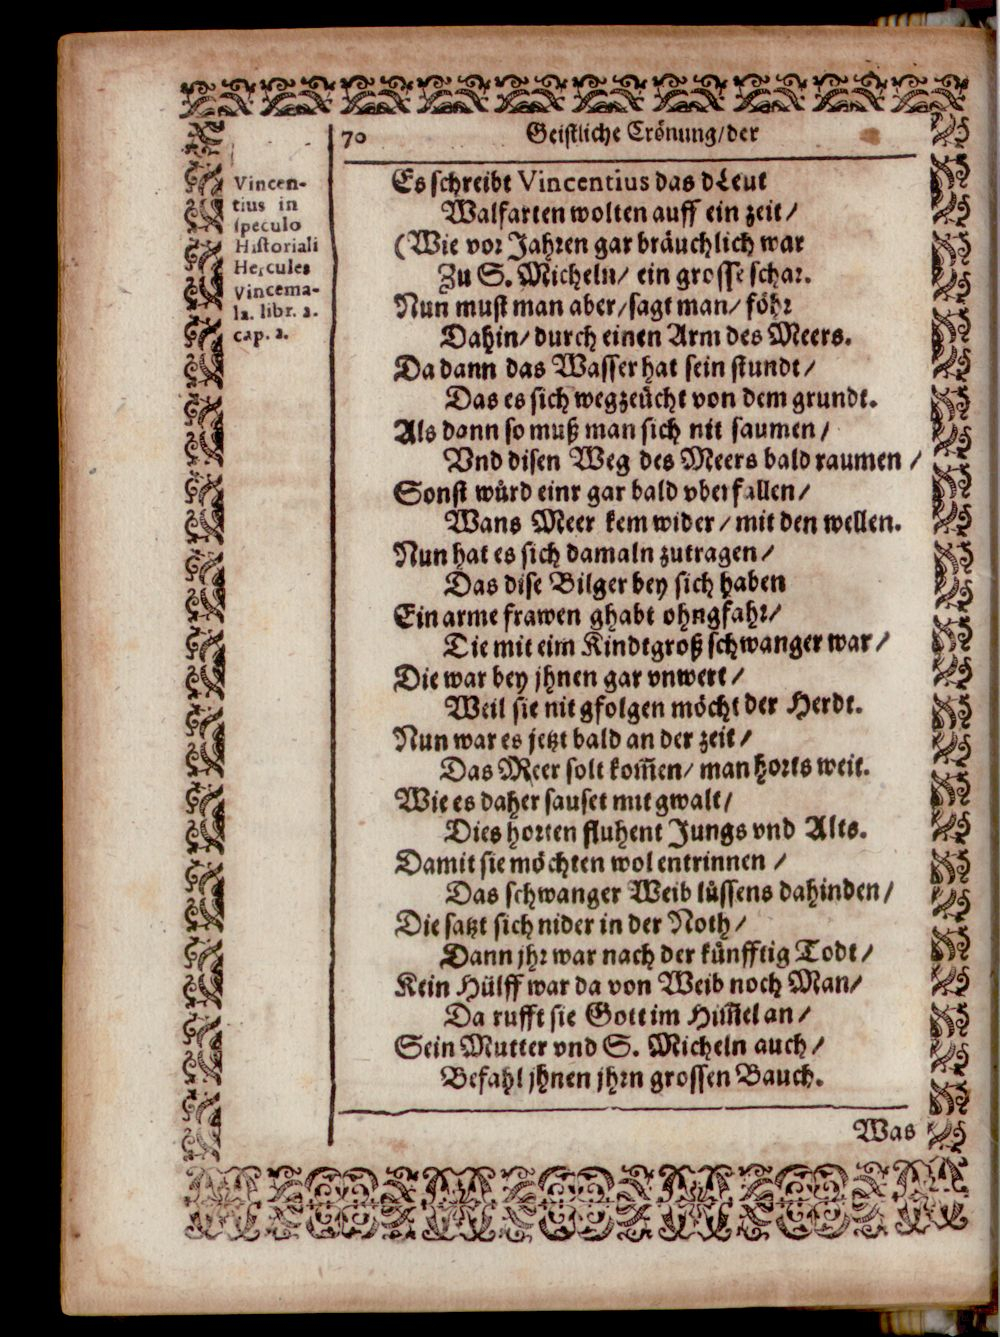 70 Geistliche Crönung/der
Vincen-
tius in
speculo
Historiali
Hercules
Vincema-
la. libr. 2.
cap. 2.
Es schreibt Vincentius das dLeut
Walfarten wolten auff ein zeit/
(Wie vor Jahren gar bräuchlich war
Zu S. Micheln/ ein grosse schar.
Nun must man aber/sagt man/ föhr
Dahin/ durch einen Arm des Meers.
Da dann das Wasser hat sein stundt/
Das es sich wegzeücht von dem grundt.
Als dann so muß man sich nit saumen/
Vnd disen Weg des Meers bald raumen/
Sonst würd einr gar bald vberfallen/
Wans Meer kem wider/ mit den wellen.
Nun hat es sich damaln zutragen/
Das dise Bilger bey sich haben
Ein arme frawen ghabt ohngfahr/
Die mit eim Kindt groß schwanger war/
Die war bey jhnen gar vnwert/
Weil sie nit gfolgen möcht der Herdt.
Nun war es jetzt bald an der zeit/
Das Meer solt kom̃en/ man horts weit.
Wie es daher sauset mit gwalt/
Dies horten fluhent Jungs vnd Alts.
Damit sie möchten wol entrinnen/
Das schwanger Weib lüssens dahinden/
Die satzt sich nider in der Noth/
Dann jhr war nach der künfftig Todt/
Kein Hülff war da von Weib noch Man/
Da rufft sie Gott im Him̃el an/
Sein Mutter vnd S. Micheln auch/
Befahl jhnen jhrn grossen Bauch.
Was